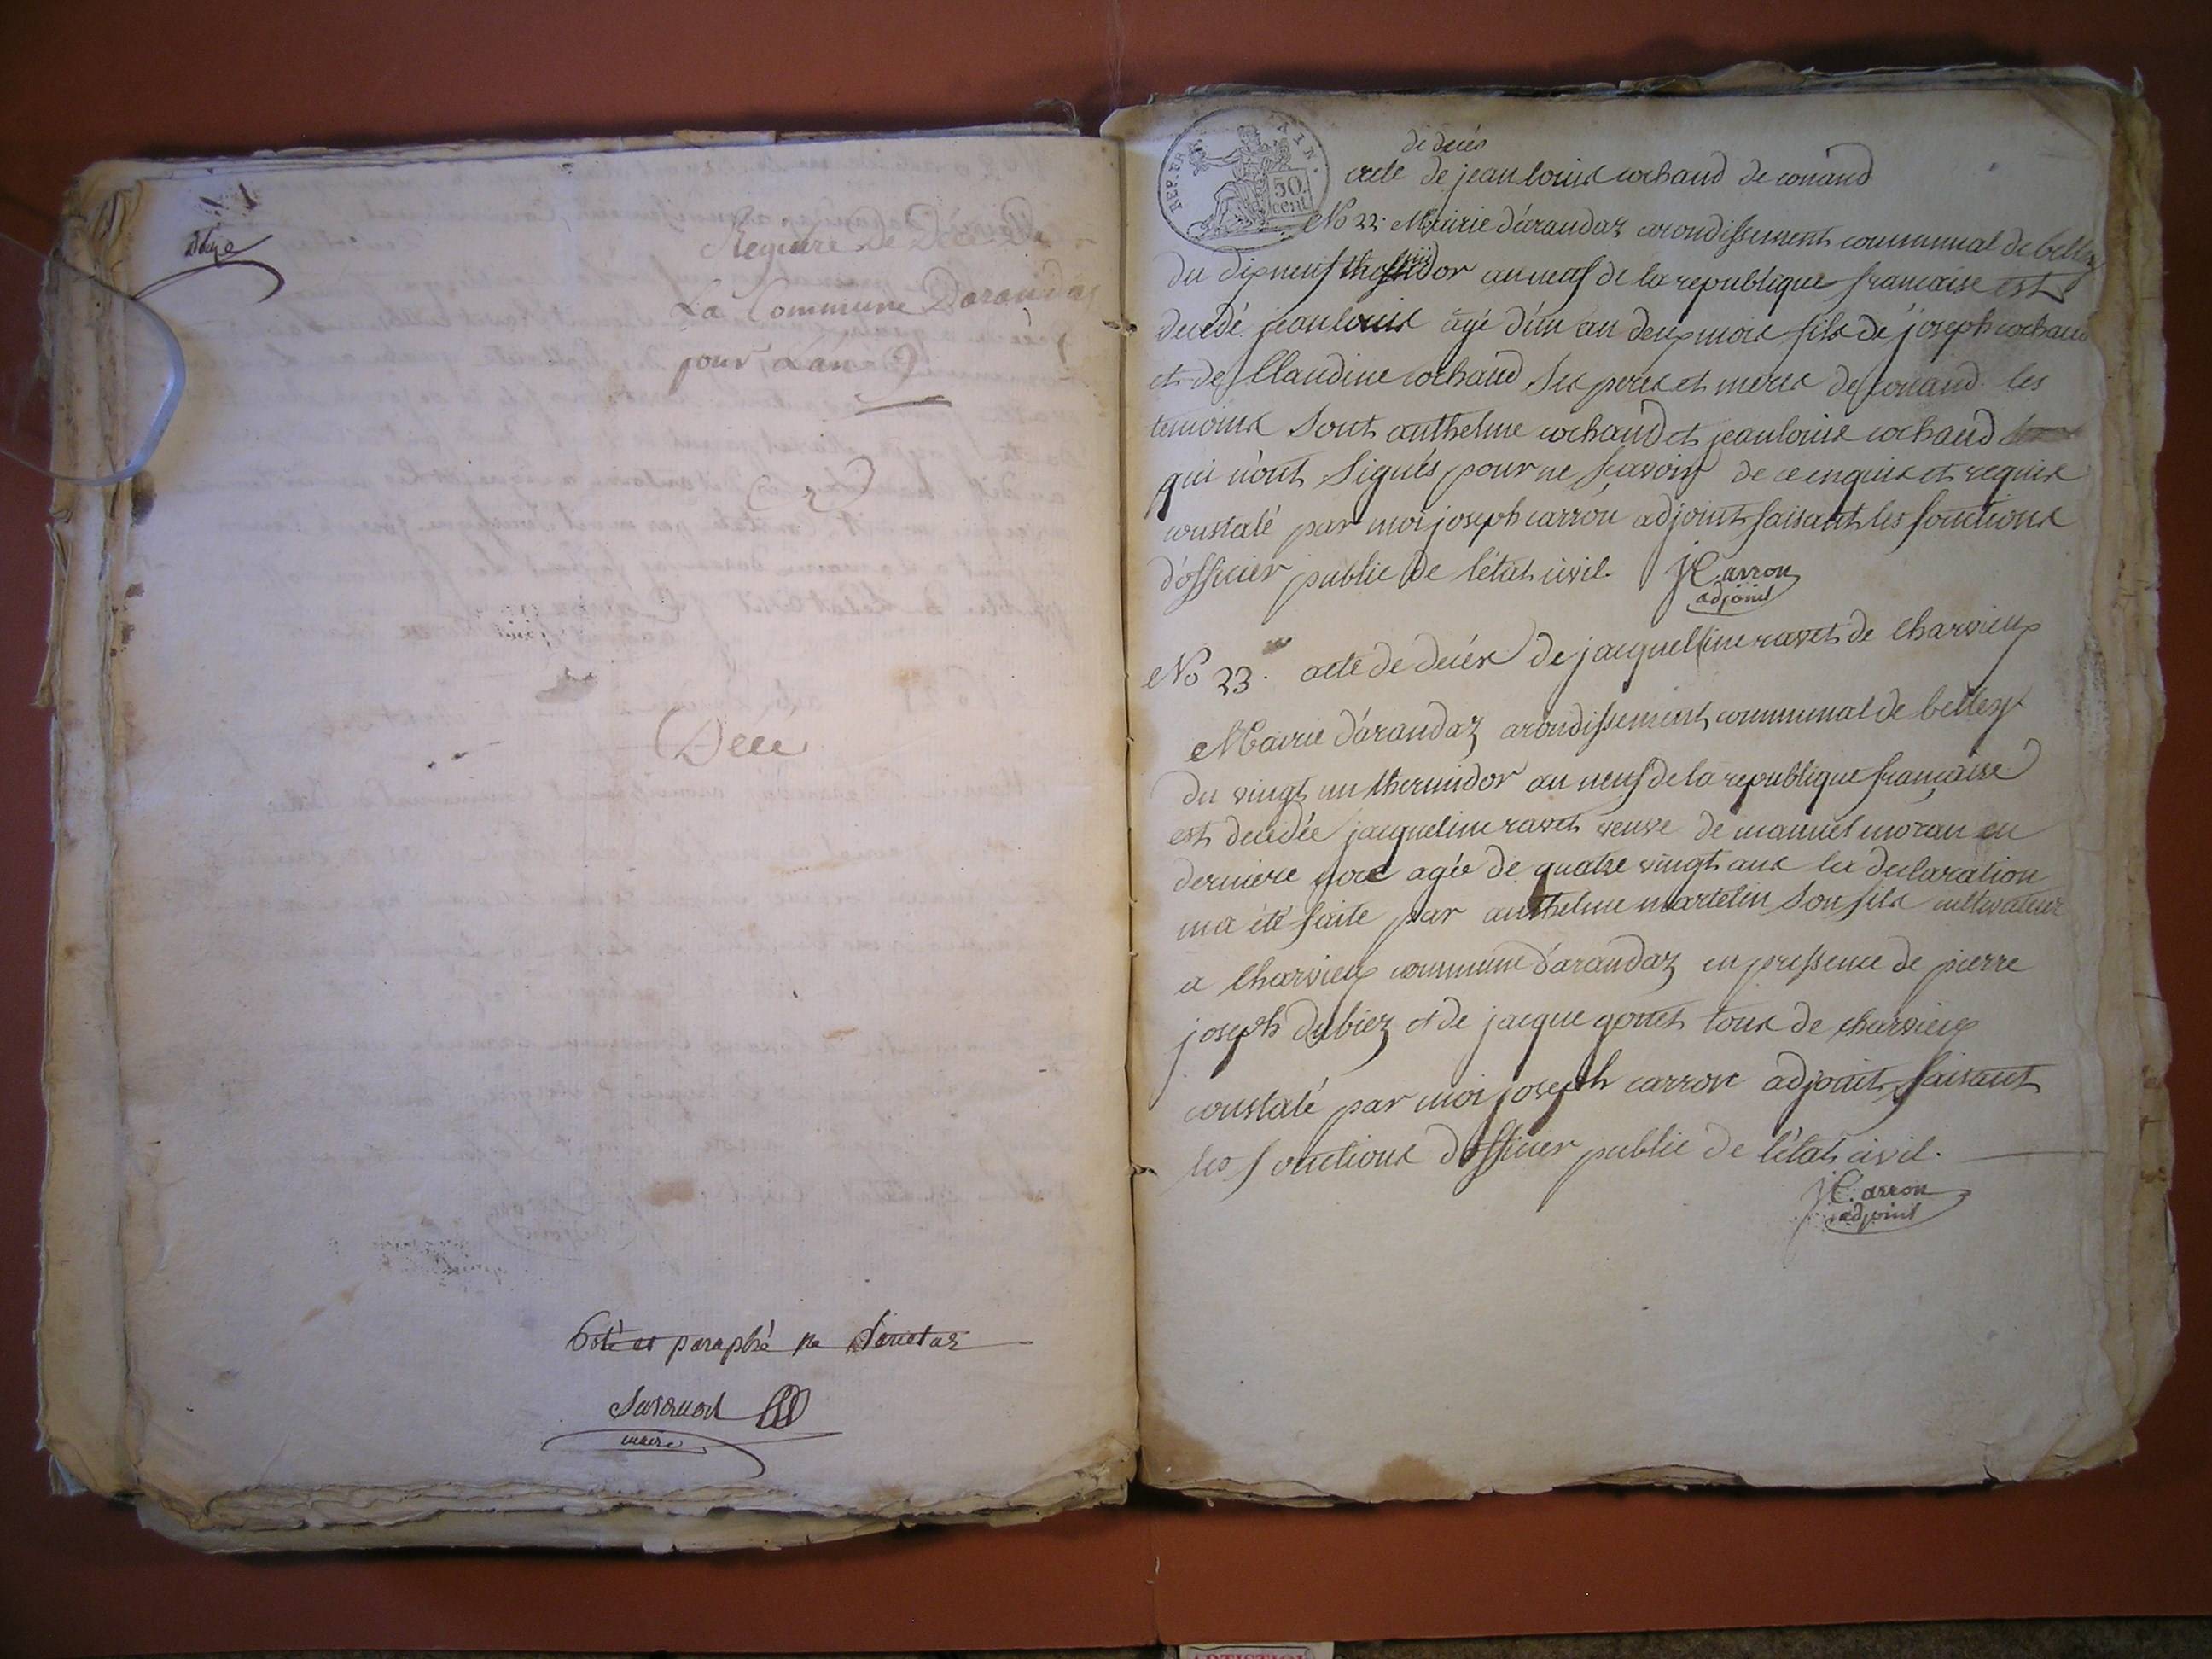 Registre de Décè De
La Commune Darandas
pour L'an 9
Décè
Coté et paraphé ne varietur
maire
REP. FRA.
AIN.
50.
cent.
de decés
acte de jean louis cochand de conand
No 22. Mairie d'arandaz arondissement communal de belley
du dix neuf thermidor an neuf de la republique francaise est
decedé jean louis agé d'un an deux mois fils de joseph cochand
et de Claudine cochand ses peres et meres de conand les
temoins sont anthelme cochand et jean louis cochand
qui n'ont signés pour ne sçavoir de ce enquis et requis
constaté par moi joseph carron adjoint faisant les fonctions
d'officier public de l'état civil. J Carron
adjoint
No 23. acte de decés de jacqueline ravet de Charvieux
Mairie d'arandaz arondissement communal de belley
du vingt un thermidor an neuf de la republique française
est decedée jacqueline ravet veuve de manuel moran en
derniere noce agée de quatre vingt ans la declaration
m'a été faite par anthelme martelin son fils cultivateur
a Charvieux commune d'arandaz en pressence de pierre
joseph dubiez et de jacque gonet tous de charvieux
constaté par moi joseph carron adjoint faisant
les fonctions d'officier public de l'état civil.
J C. arron
adjoint